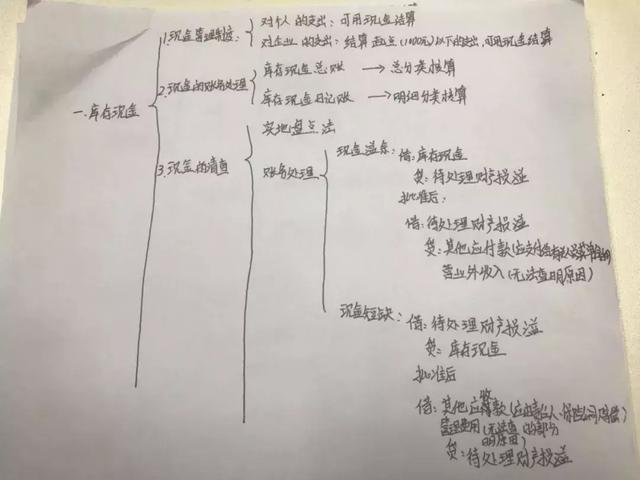 一.库存现金
1.现金管理制度:
对个人的支出:可用现金结算
对企业的支出:结算起点(1000元)以下的支出,可用现金结算
2.现金的账务处理
库存现金总账 → 总分类核算
库存现金日记账 → 明细分类核算
3.现金的清查
实地盘点法
账务处理
现金溢余:
借:库存现金
贷:待处理财产损溢
批准后:
借:待处理财产损溢
贷:其他应付款(应支付给有关人员或单位的)
营业外收入(无法查明原因)
现金短缺:
借:待处理财产损溢
贷:库存现金
批准后
借:其他应收款(应由责任人、保险公司赔偿)
管理费用(无法查明原因的部分)
贷:待处理财产损溢